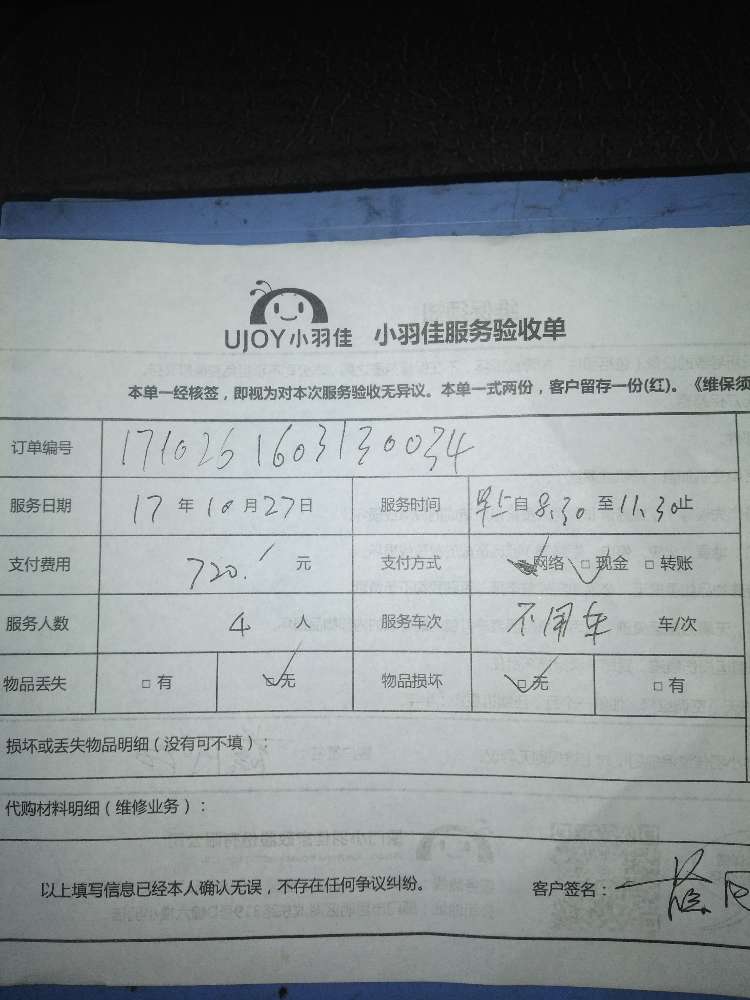 UJOY小羽佳 小羽佳服务验收单
本单一经核签，即视为对本次服务验收无异议。本单一式两份，客户留存一份(红)。《维保须
订单编号 171026160313 0034
服务日期 17 年 10 月 27 日 服务时间 早上自 8.30 至 11.30 止
支付费用 720. 元 支付方式 □ 网络 □ 现金 □ 转账
服务人数 4 人 服务车次 不用车 车/次
物品丢失 □ 有 □ 无 物品损坏 □ 无 □ 有
损坏或丢失物品明细（没有可不填）：
代购材料明细（维修业务）：
以上填写信息已经本人确认无误，不存在任何争议纠纷。 客户签名：